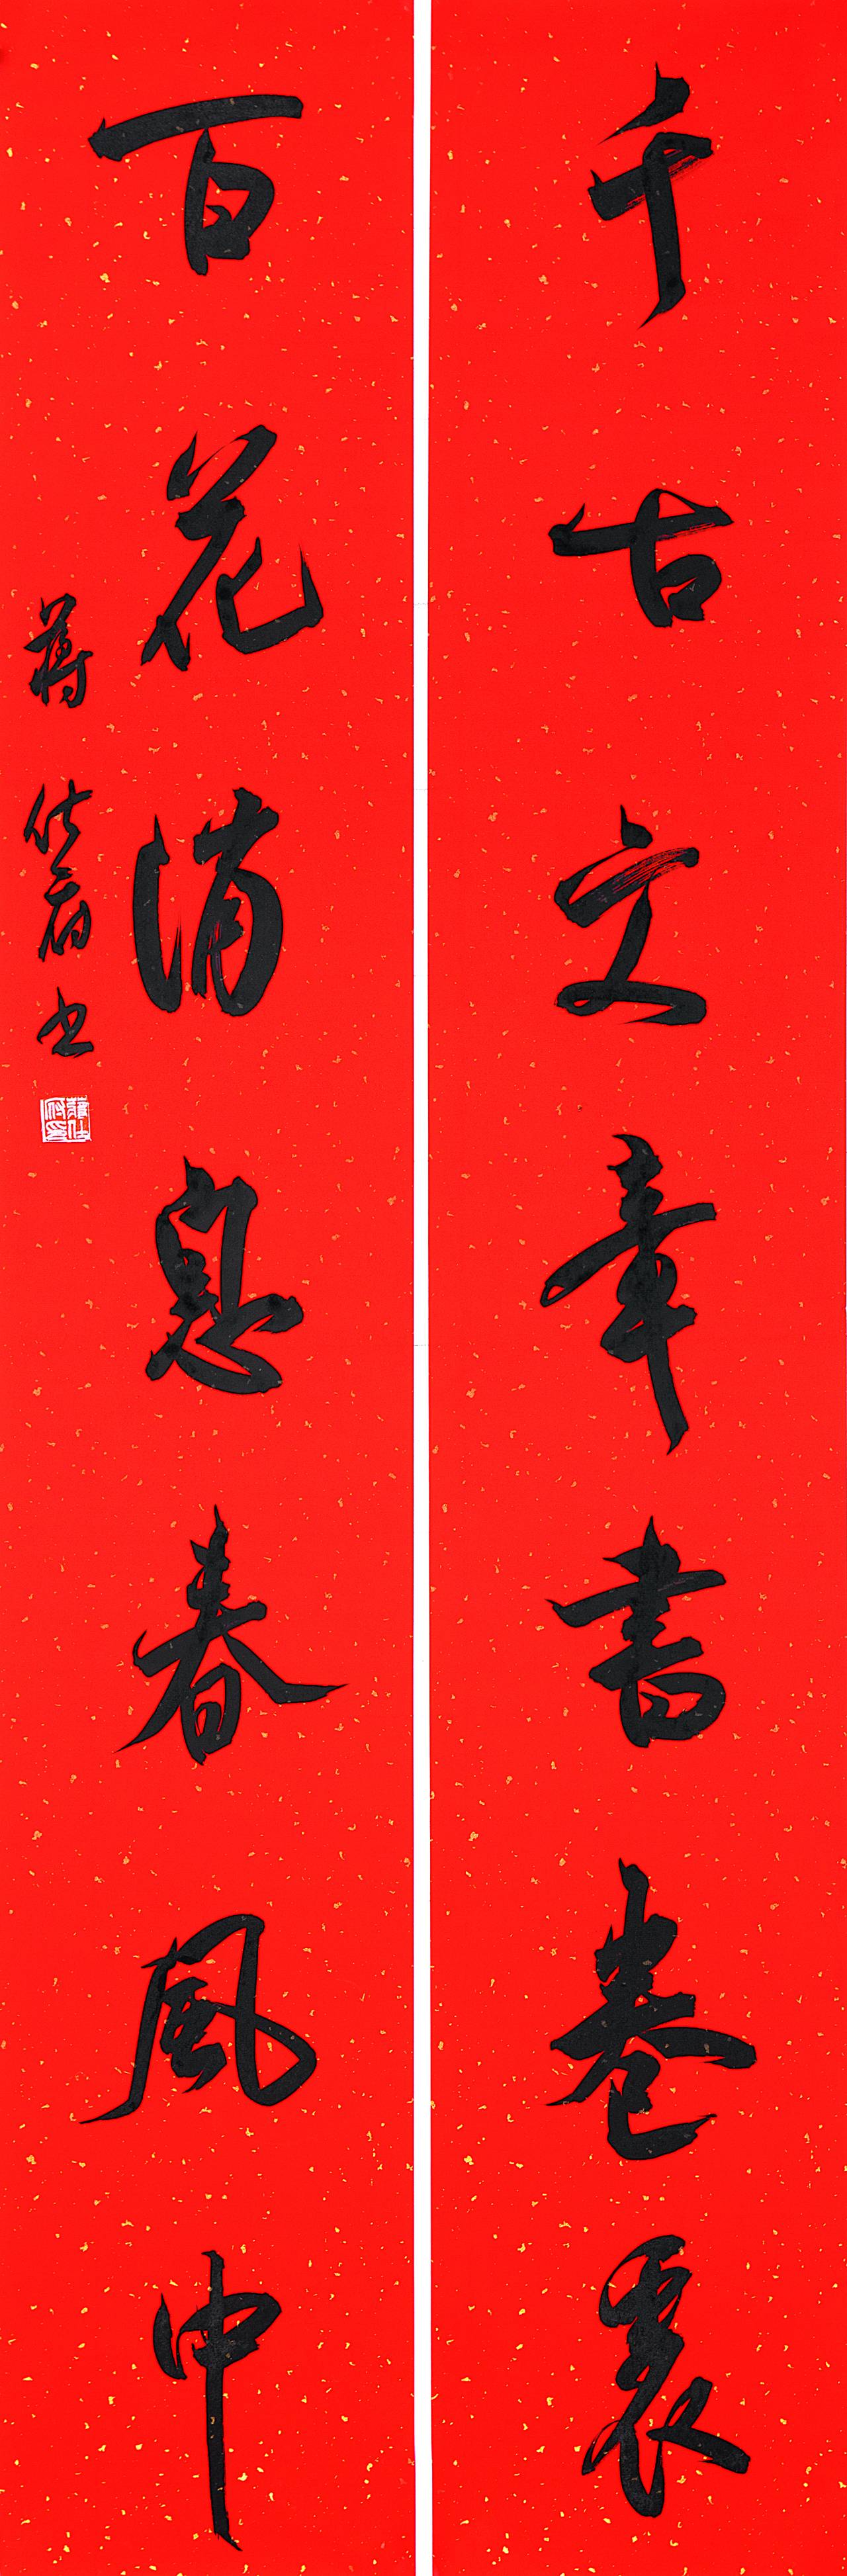 千古文章書卷裏
百花消息春風中
蔣仕府书